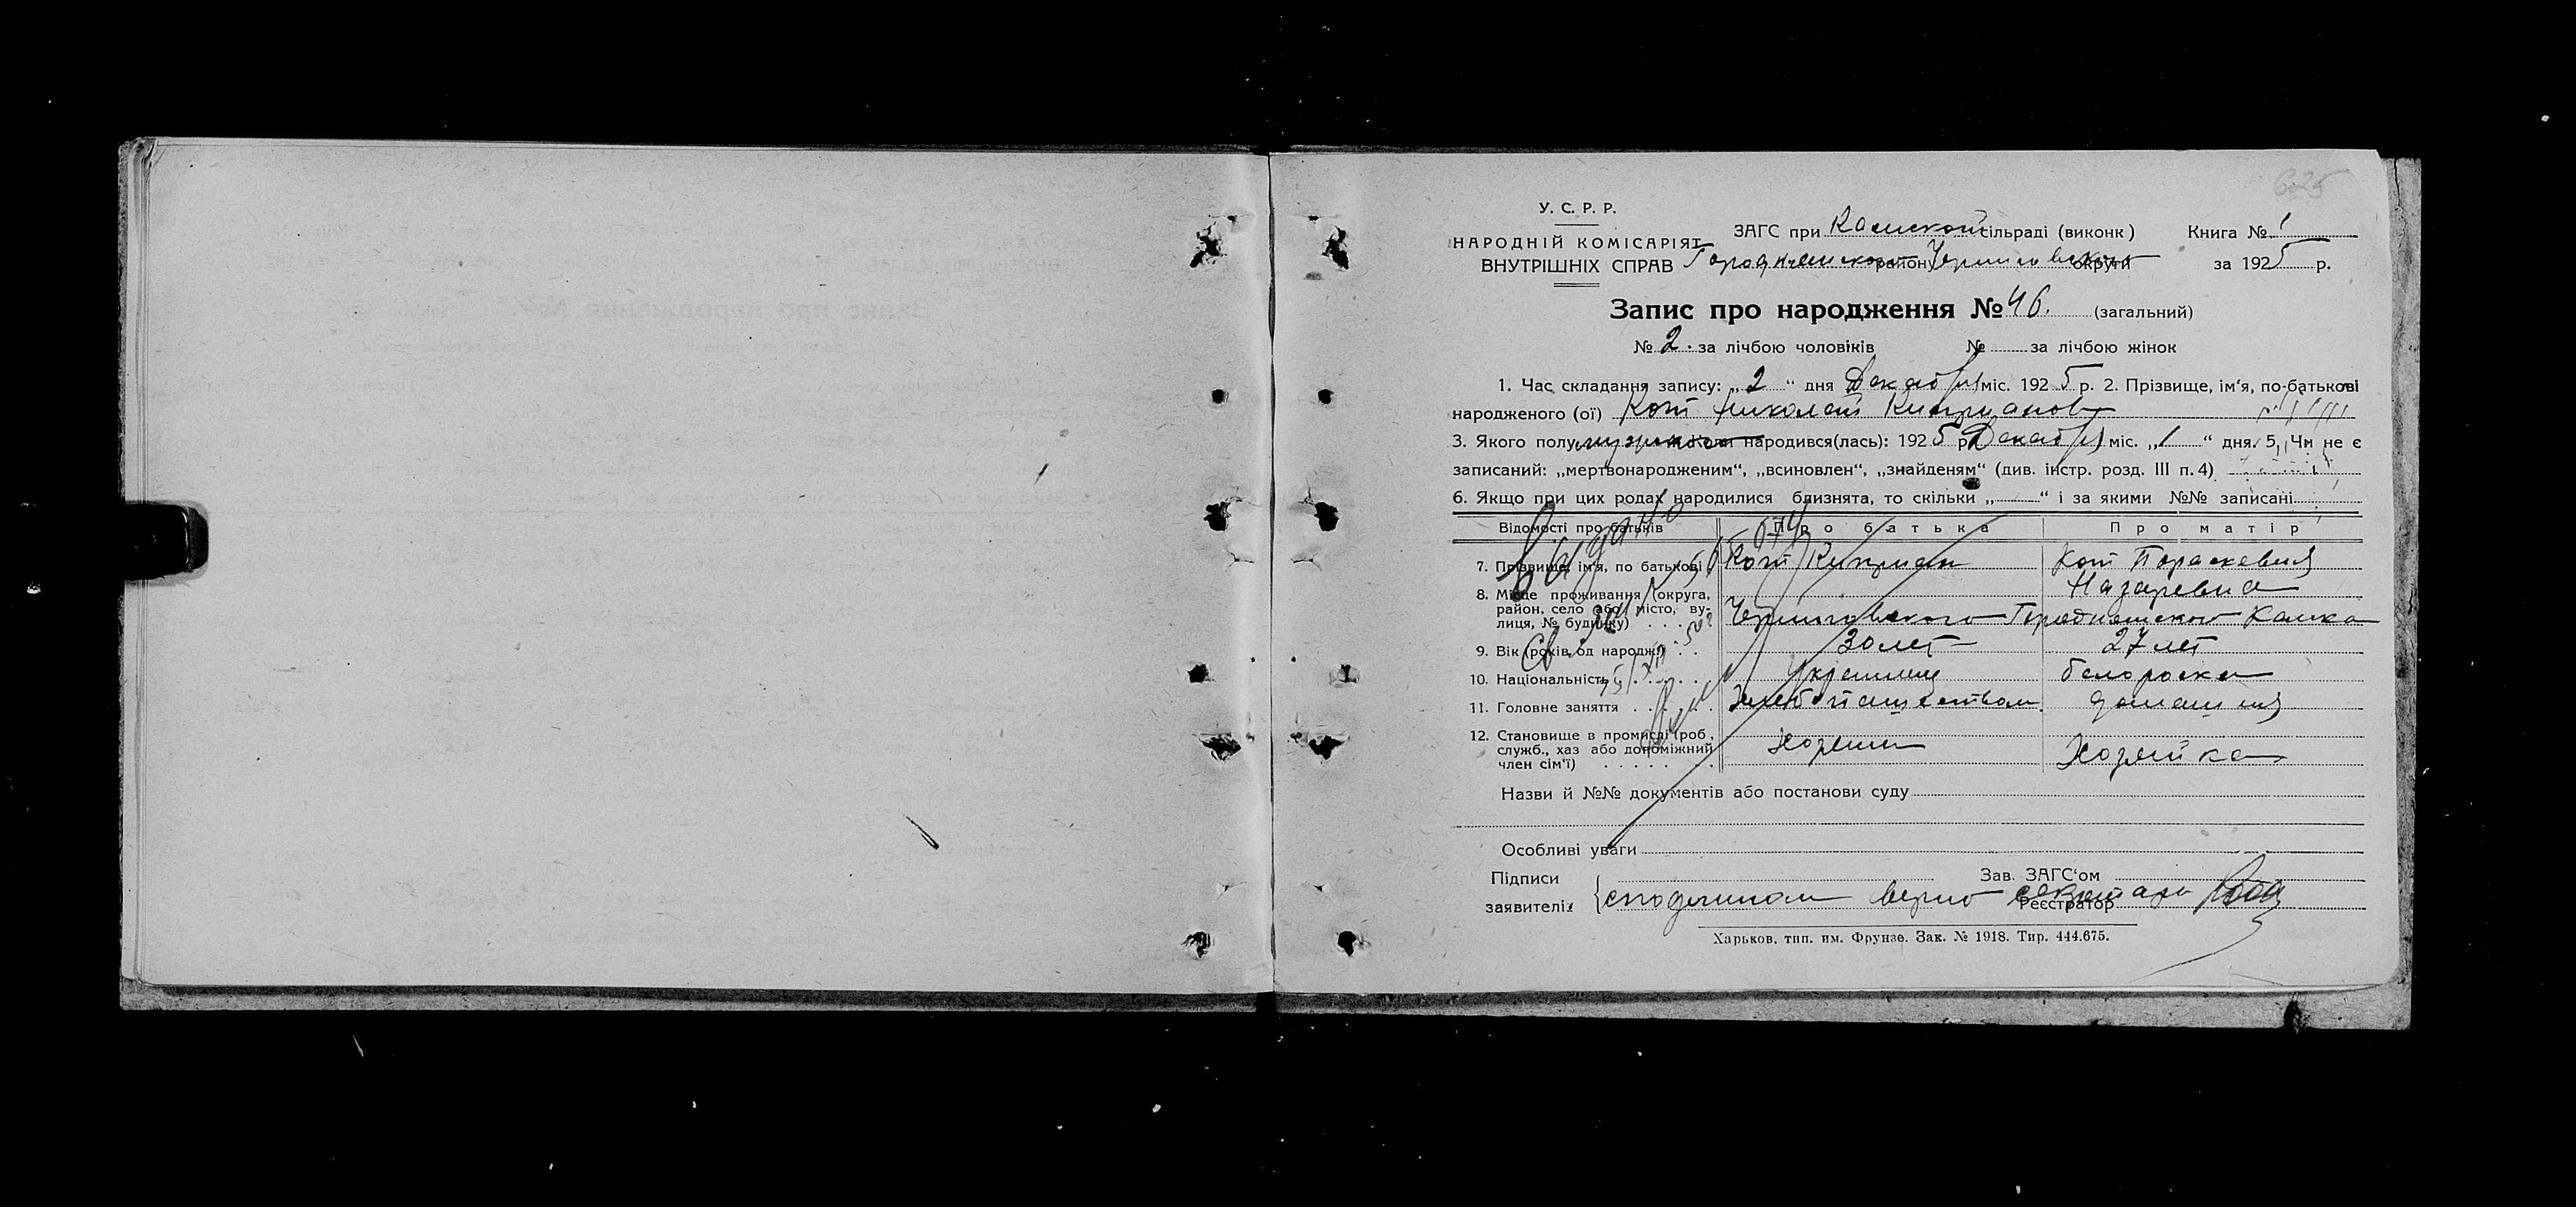 625
У. С. Р. Р.
НАРОДНІЙ КОМІСАРІЯТ
ВНУТРІШНІХ СПРАВ
ЗАГС при Камской сільраді (виконк) Книга № 1
Городнянского району Черниговского округи за 1925 р.
Запис про народження № 46. (загальний)
№ 2. за лічбою чоловіків № за лічбою жінок
1. Час складання запису: „2“ дня Декабря міс. 1925 р. 2. Прізвище, ім'я, по-батькові
народженого (ої) Кот Николай Киприанов
3. Якого полу мужского Коли народився(лась): 1925 р. Декабря міс. „1“ дня. 5. Чи не є
записаний: „мертвонародженим“, „всиновлен“, „знайденям“ (див. інстр. розд. III п. 4)
6. Якщо при цих родах народилися близнята, то скільки „ “ і за якими №№ записані
Відомості про батьків Про батька Про матір
7. Прізвище, ім'я, по батькові Кот Киприан Кот Параскевия
Назаревна
8. Місце проживання (округа,
район, село або місто, ву-
лиця, № будинку) Черниговского Городнянского Камка
9. Вік (років од народж.) 30 лет 27 лет
10. Національність Украинец белоруска
11. Головне заняття Хлебопашеством домашния
12. Становище в промислі (роб.,
служб., хаз або допоміжний
член сім'ї) Хозяин Хозяйка
Выдано
Св
Назви й №№ документів або постанови суду
Особливі уваги
Підписи Зав. ЗАГС'ом
заявителів с подлинном верно секретарь
Реєстратор
Харьков. тип. им. Фрунзе. Зак. № 1918. Тир. 444.675.